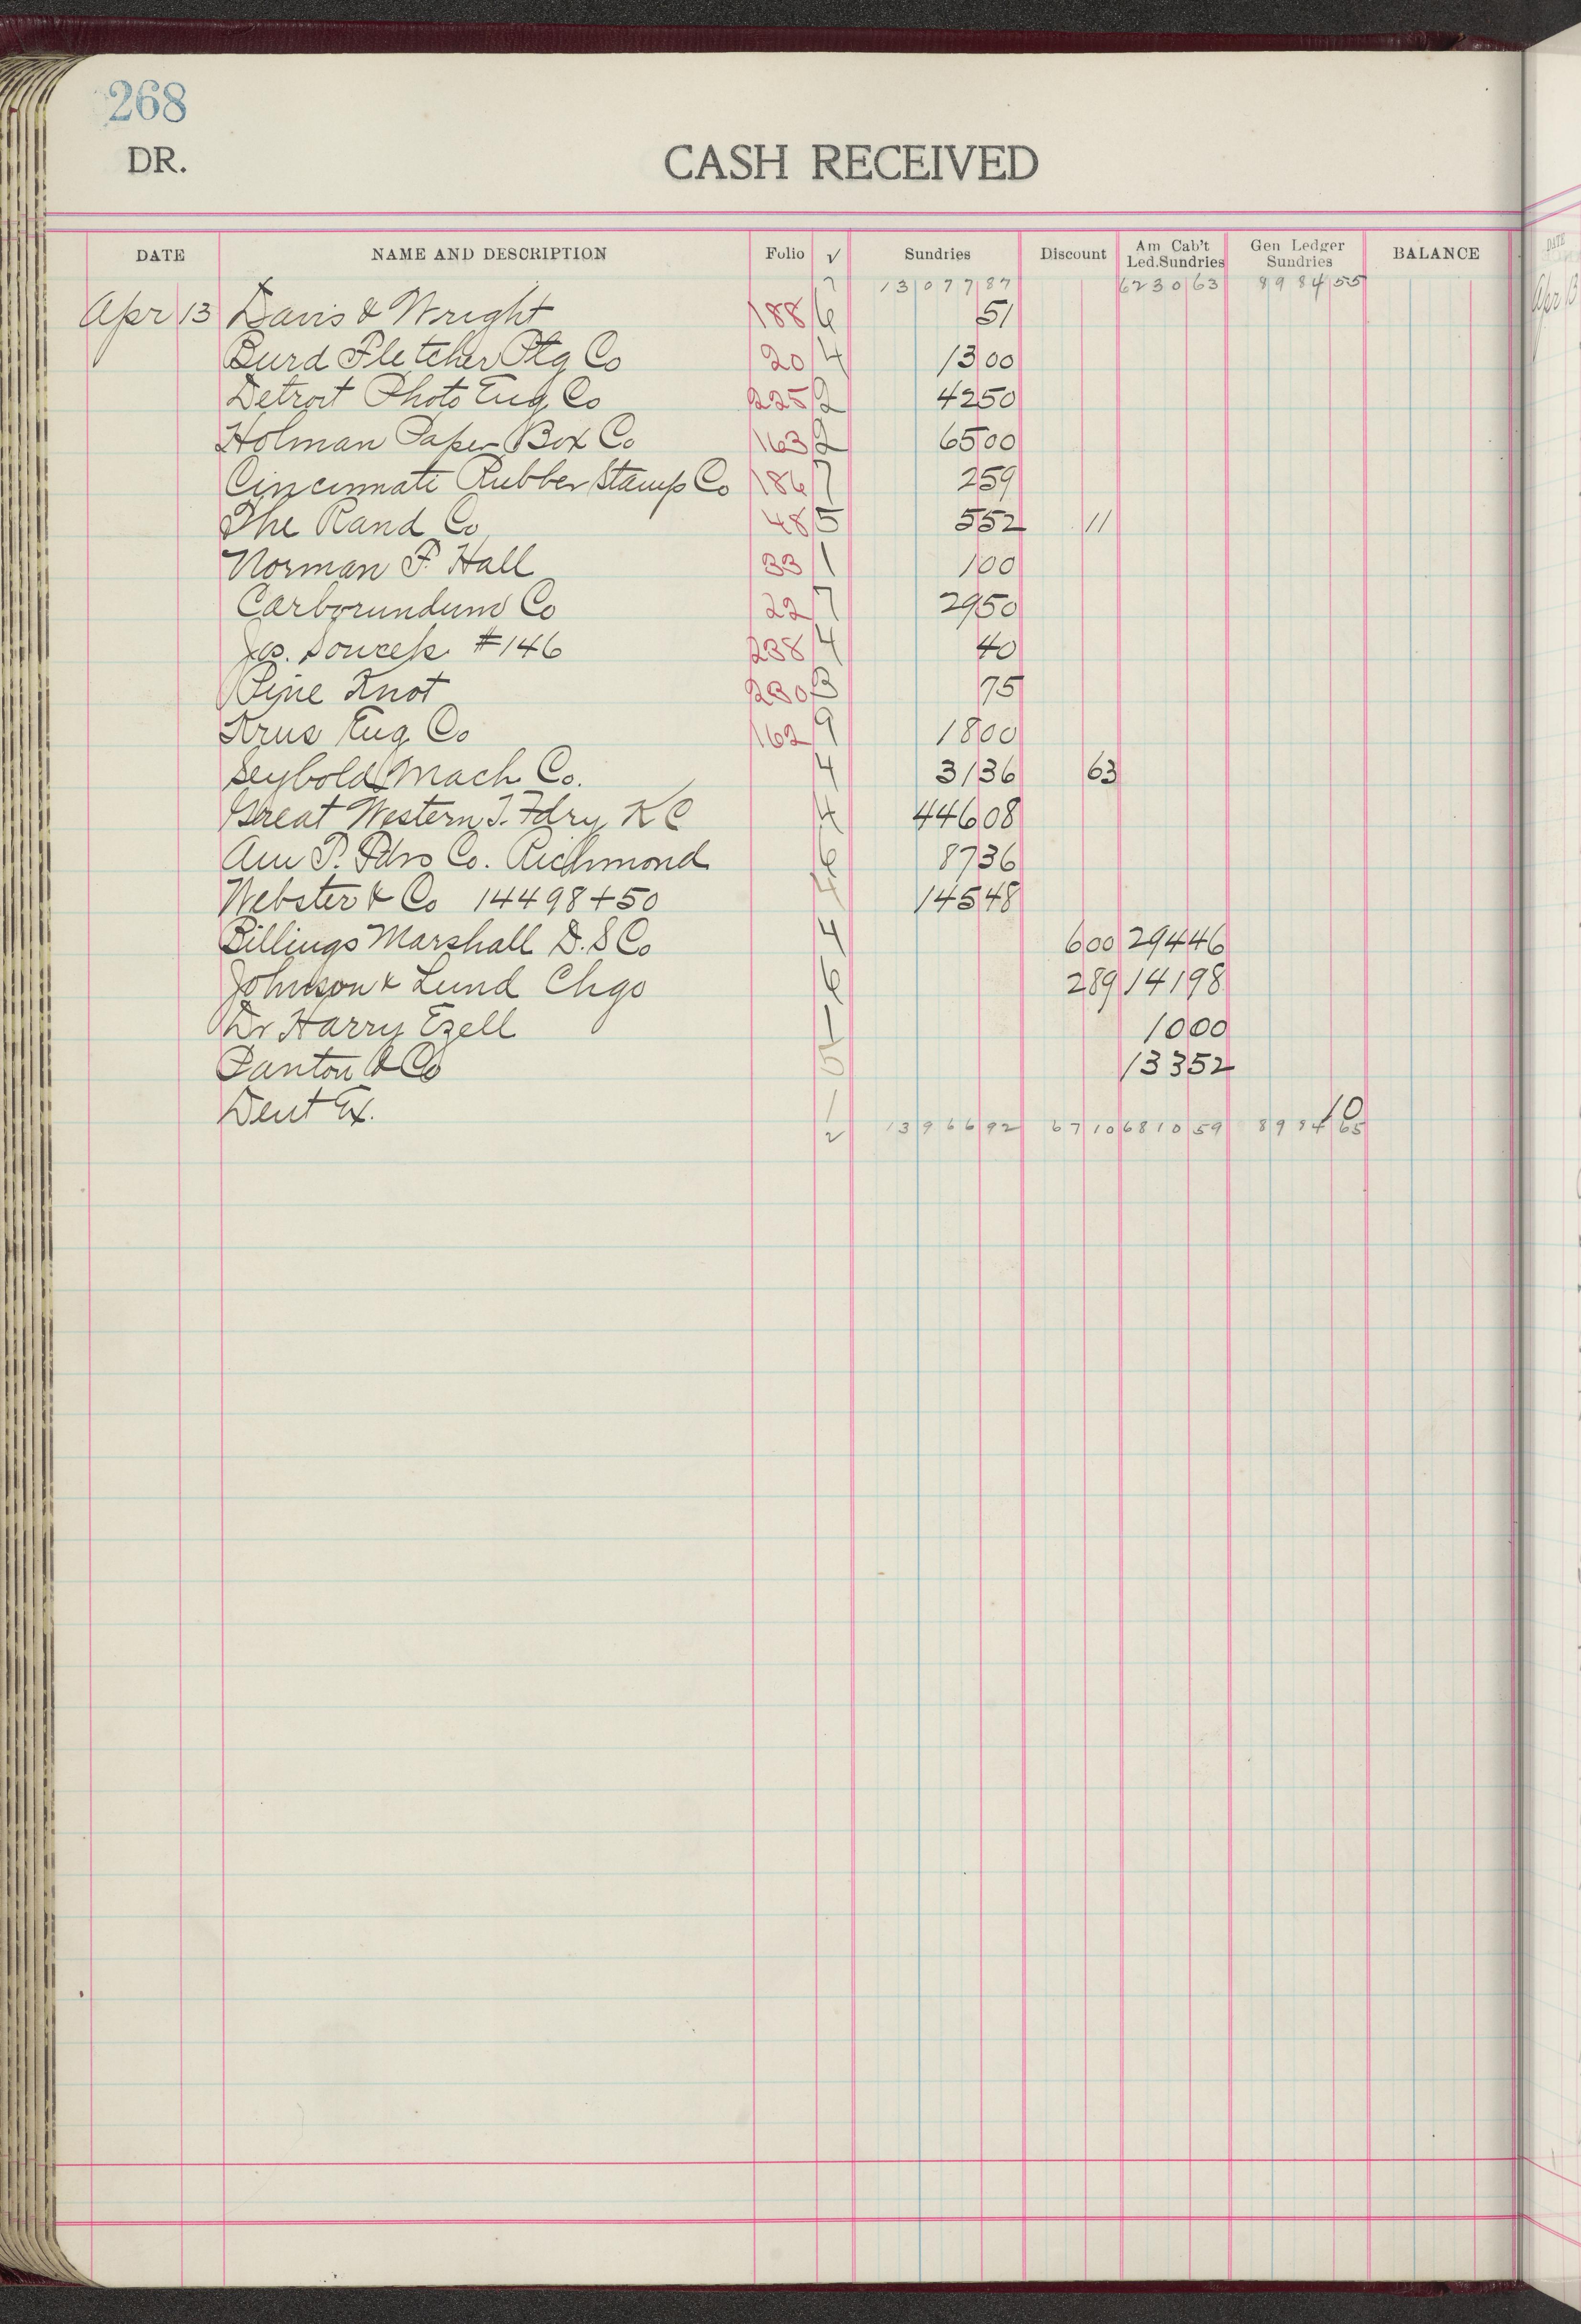 268
DR. CASH RECEIVED
DATE NAME AND DESCRIPTION Folio √ Sundries Discount Am Cab't Led.Sundries Gen Ledger Sundries BALANCE
7 13077 87 6230 63 8984 55
Apr 13 Davis & Wright 188 6 51
Burd Fletcher Ptg Co 20 4 13 00
Detroit Photo Eng Co 225 2 42 50
Holman Paper Box Co 163 2 65 00
Cincinnati Rubber Stamp Co 186 7 2 59
The Rand Co 48 5 5 52 11
Norman F. Hall 33 1 1 00
Carborundum Co 22 7 29 50
Jas. Soucek #146 238 4 40
Pine Knot 230 3 75
Krus Eng Co 162 9 18 00
Seybold Mach Co. 4 31 36 63
Great Western T. Fdry K C 4 446 08
Am T. Fdrs Co. Richmond 6 87 36
Webster & Co 144 98 + 50 4 145 48
Billings Marshall D. S Co 4 6 00 294 46
Johnson & Lund Chgo 6 2 89 141 98
Dr Harry Ezell 1 10 00
Panton & Co 5 133 52
Dent Ex. 1 10
2 13966 92 67 10 6810 59 8984 65
Apr 13